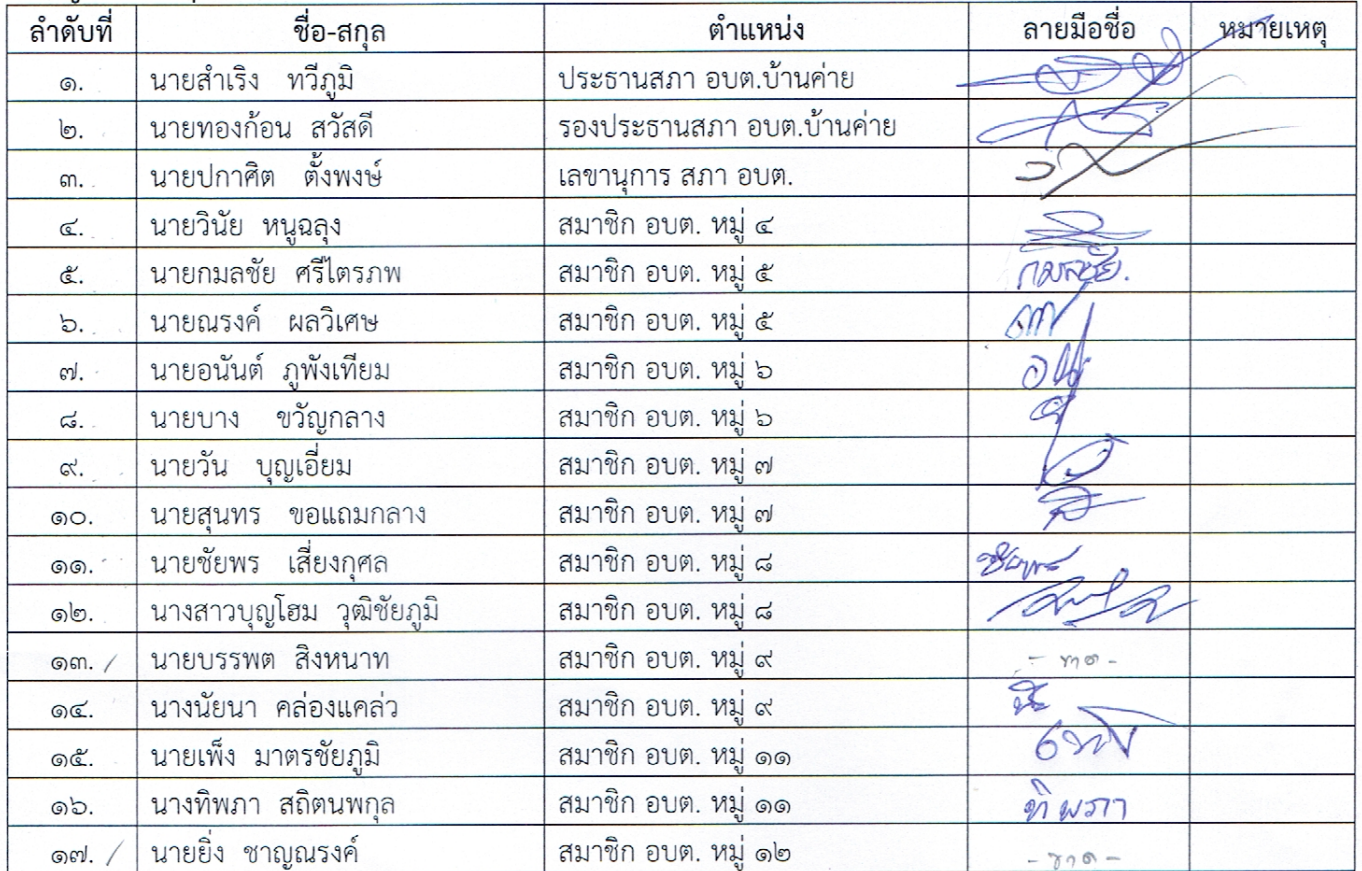 ลำดับที่ ชื่อ-สกุล ตำแหน่ง ลายมือชื่อ หมายเหตุ
๑. นายสำเริง ทวีภูมิ ประธานสภา อบต.บ้านค่าย
๒. นายทองก้อน สวัสดี รองประธานสภา อบต.บ้านค่าย
๓. นายปกาศิต ตั้งพงษ์ เลขานุการ สภา อบต.
๔. นายวินัย หนูฉลุง สมาชิก อบต. หมู่ ๔
๕. นายกมลชัย ศรีไตรภพ สมาชิก อบต. หมู่ ๕ กมลชัย.
๖. นายณรงค์ ผลวิเศษ สมาชิก อบต. หมู่ ๕
๗. นายอนันต์ ภูพังเทียม สมาชิก อบต. หมู่ ๖
๘. นายบาง ขวัญกลาง สมาชิก อบต. หมู่ ๖
๙. นายวัน บุญเอี่ยม สมาชิก อบต. หมู่ ๗
๑๐. นายสุนทร ขอแถมกลาง สมาชิก อบต. หมู่ ๗
๑๑. นายชัยพร เสี่ยงกุศล สมาชิก อบต. หมู่ ๘ ชัยพร
๑๒. นางสาวบุญโฮม วุฒิชัยภูมิ สมาชิก อบต. หมู่ ๘
๑๓. / นายบรรพต สิงหนาท สมาชิก อบต. หมู่ ๙ - ขาด -
๑๔. นางนัยนา คล่องแคล่ว สมาชิก อบต. หมู่ ๙
๑๕. นายเพ็ง มาตรชัยภูมิ สมาชิก อบต. หมู่ ๑๑
๑๖. นางทิพภา สถิตนพกุล สมาชิก อบต. หมู่ ๑๑ ทิพภา
๑๗. / นายยิ่ง ชาญณรงค์ สมาชิก อบต. หมู่ ๑๒ - ขาด -